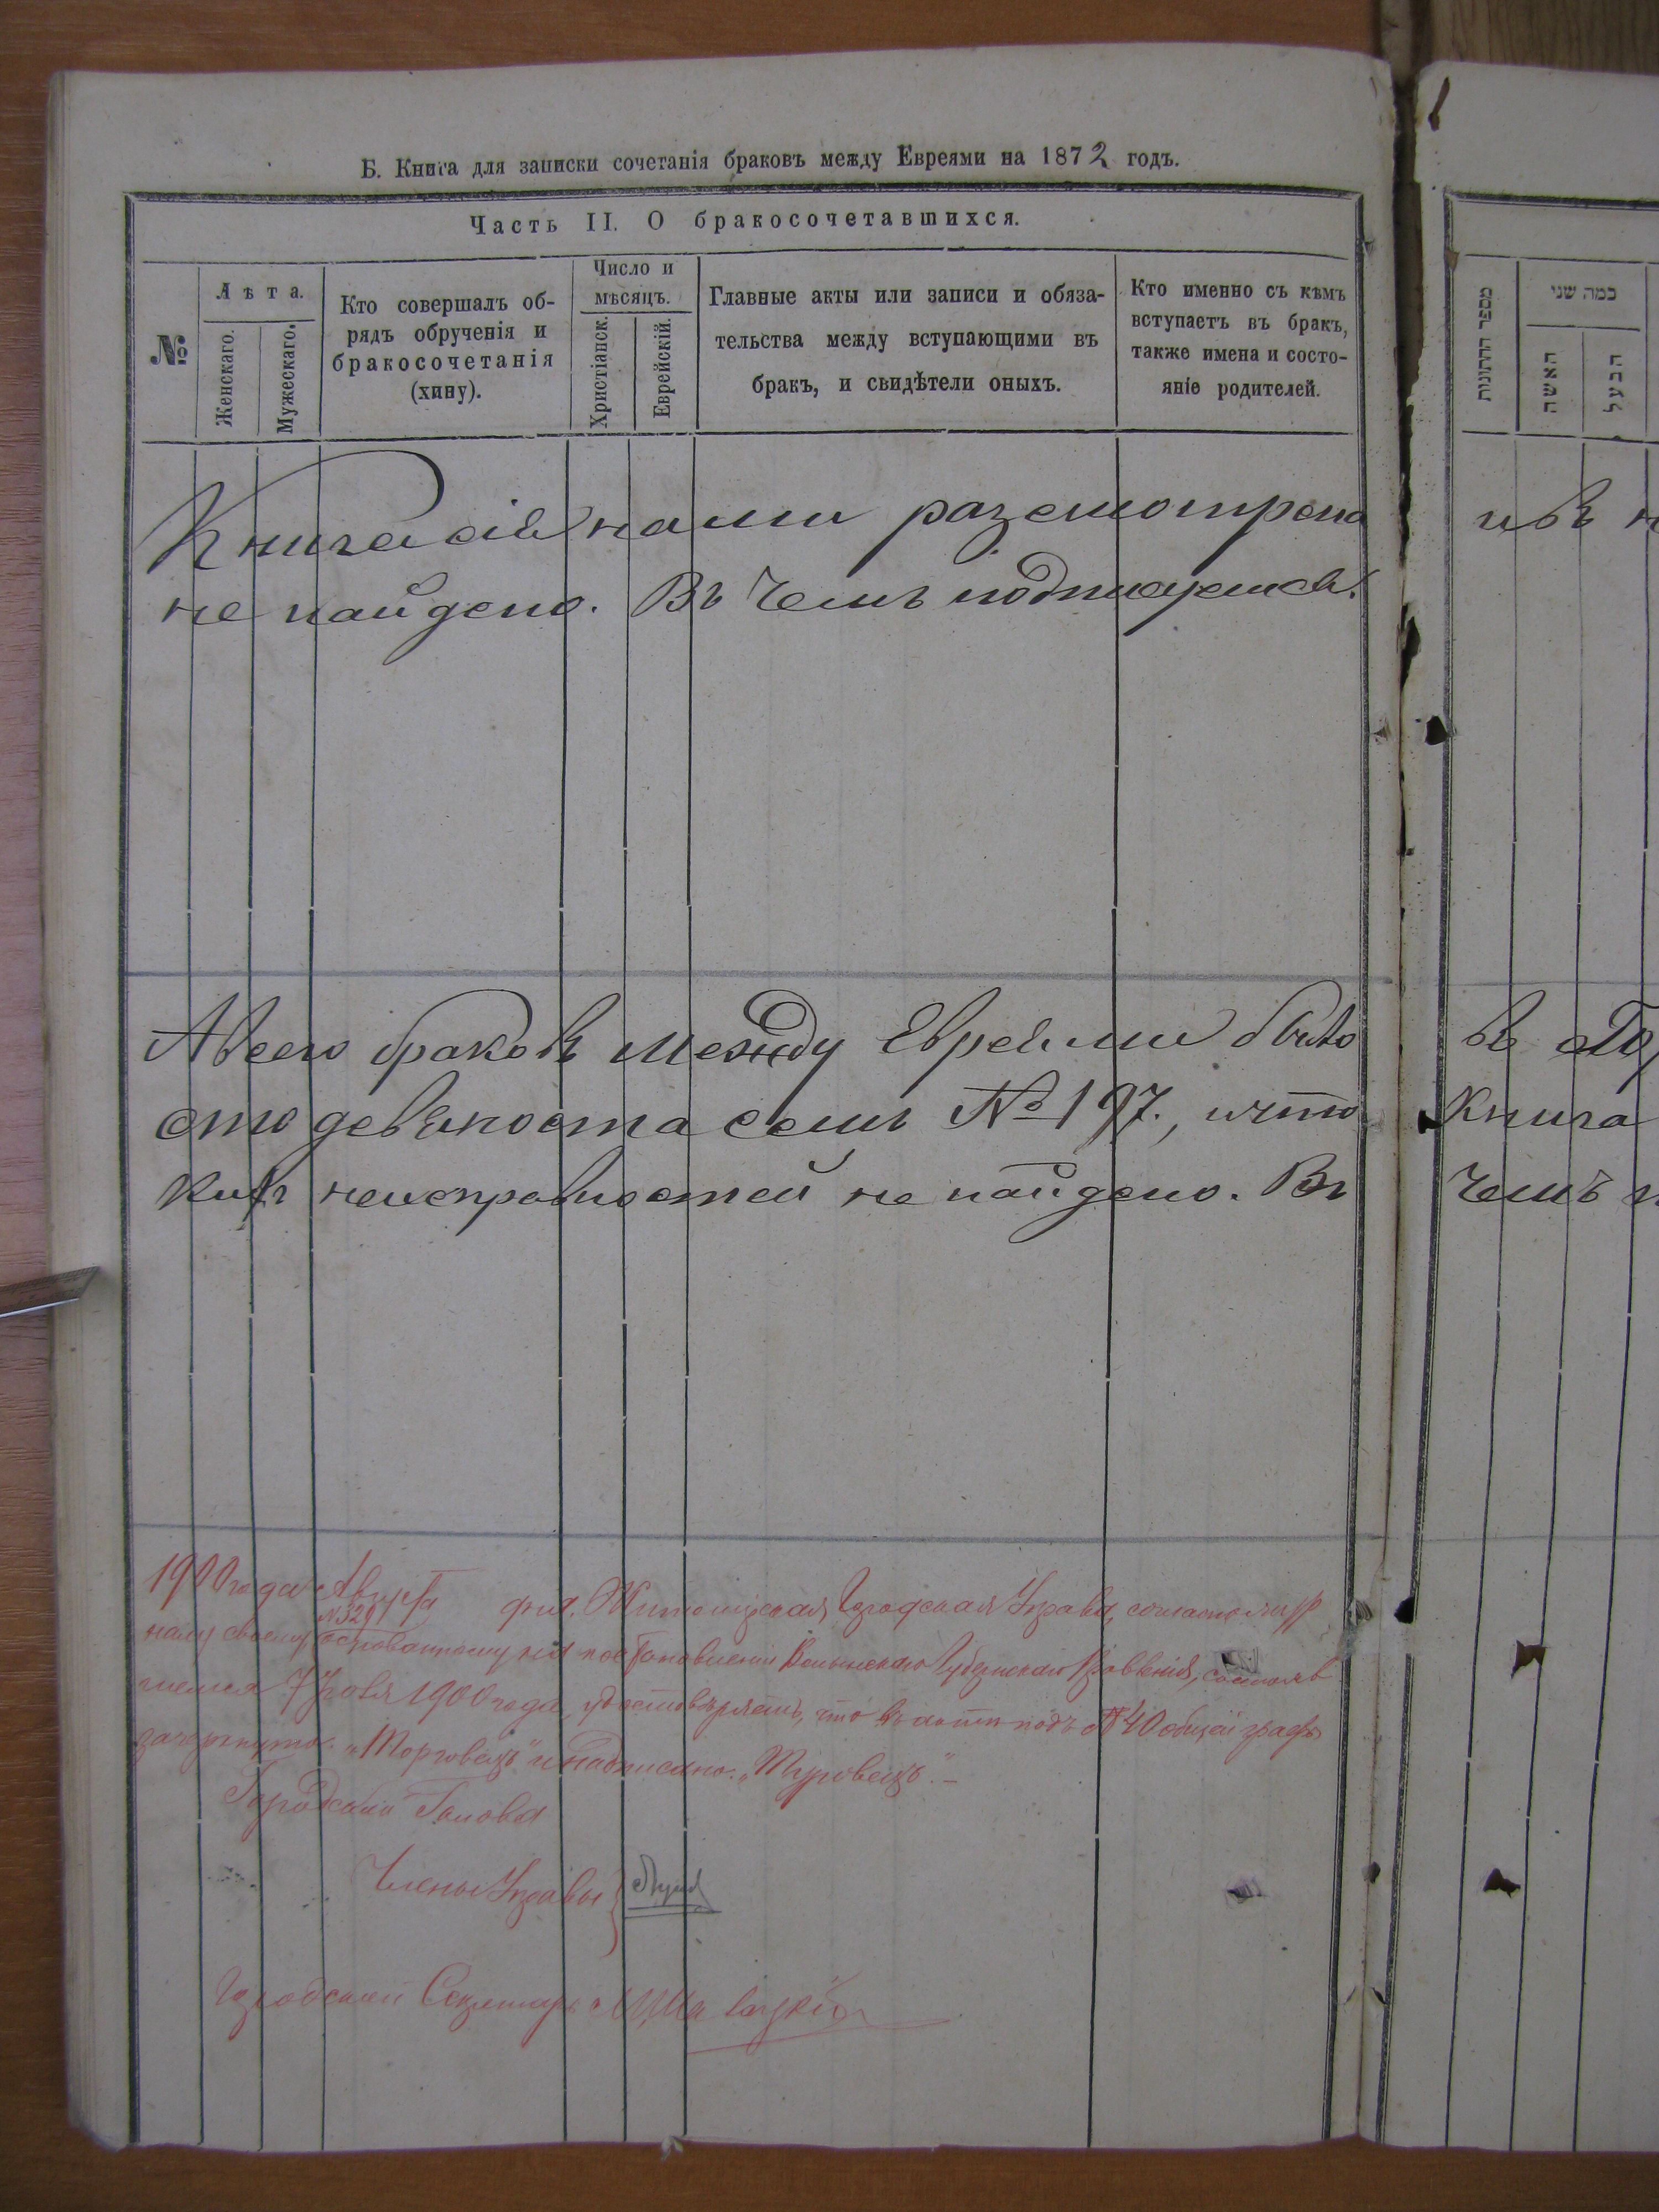 Б. Книга для записки сочетанія браковъ между Евреями на 1872 годъ.
Часть II. О бракосочетавшихся.
№
Лѣта.
Женскаго.
Мужескаго.
Кто совершалъ об-
рядъ обрученія и
бракосочетанія
(хину).
Число и
мѣсяцъ.
Христіанск.
Еврейскій.
Главные акты или записи и обяза-
тельства между вступающими въ
бракъ, и свидѣтели оныхъ.
Кто именно съ кѣмъ
вступаетъ въ бракъ,
также имена и состо-
яніе родителей.
מספר החתונות
כמה שני
האשה
הבעל
Книга сія нами разсмотрена
не найдено. Въ чемъ подписуемся.
А всего браковъ между Евреями было
сто девяноста семь № 197., и что
кихъ неисправностей не найдено. Въ
Книга
чемъ
1900 года Августа дня. Житомирская Городская Управа, согласно жур
№ 329
налу своему основанному на постановленіи Волынскаго Губернскаго Правленія, состояв
шемся 7 1900 года, удостовѣряетъ, что въ актѣ подъ № 40 общей графы
зачеркнуто: „Торговецъ" и надписано: „Туровецъ". –
Городской Голова
Члены Управы
Городской Секретарь